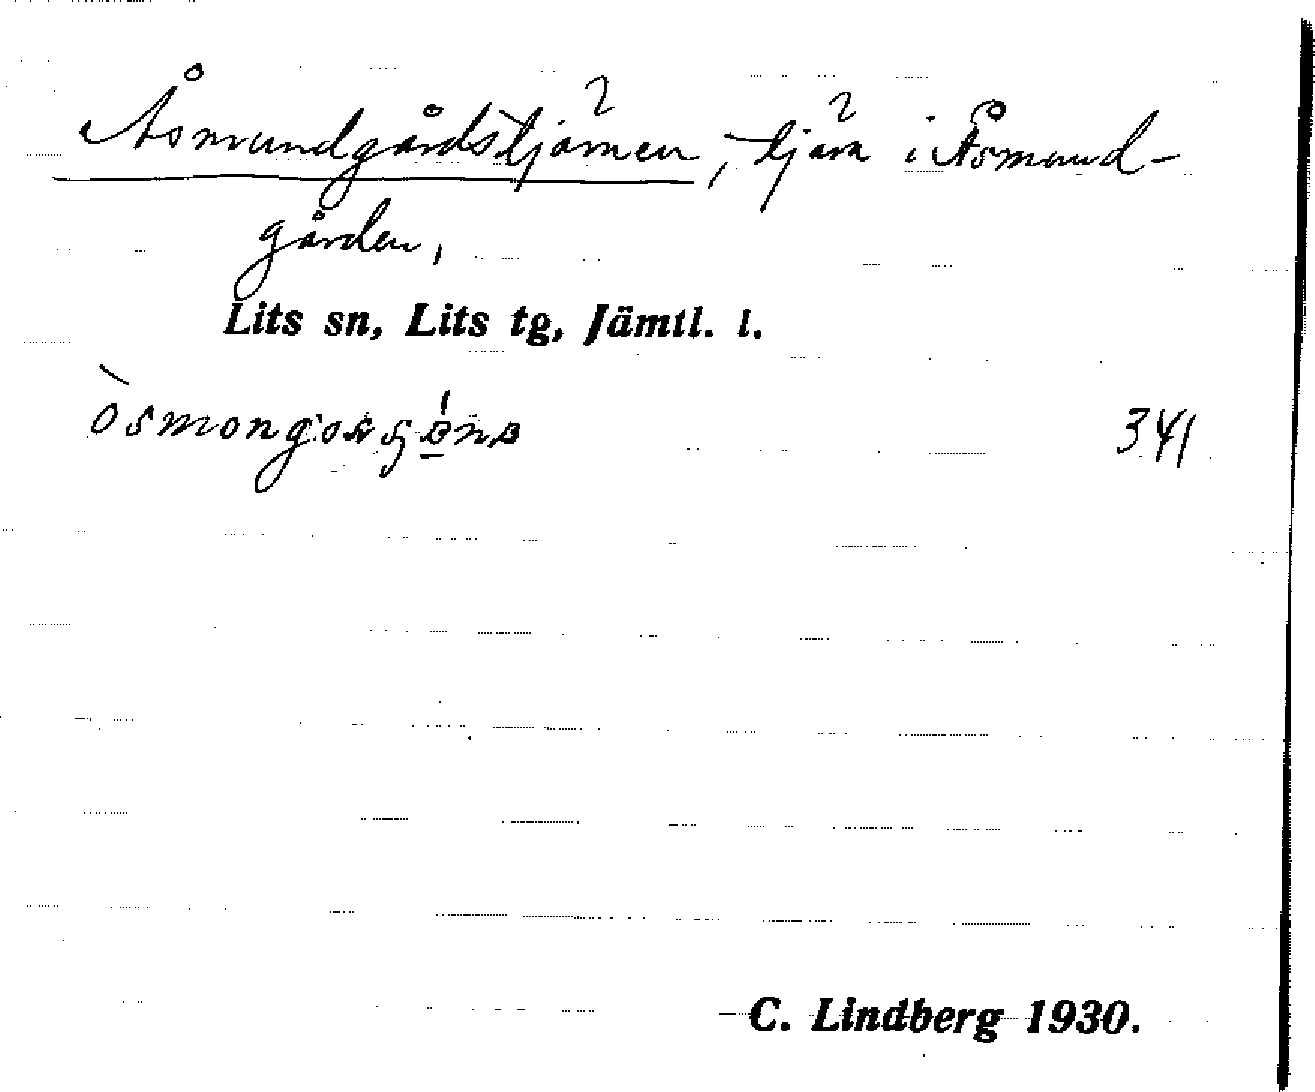 Åsmundgårdstjärnen, tjärn i Åsmund-
gården,
Lits sn, Lits tg, Jämtl. l.
341
C. Lindberg 1930.